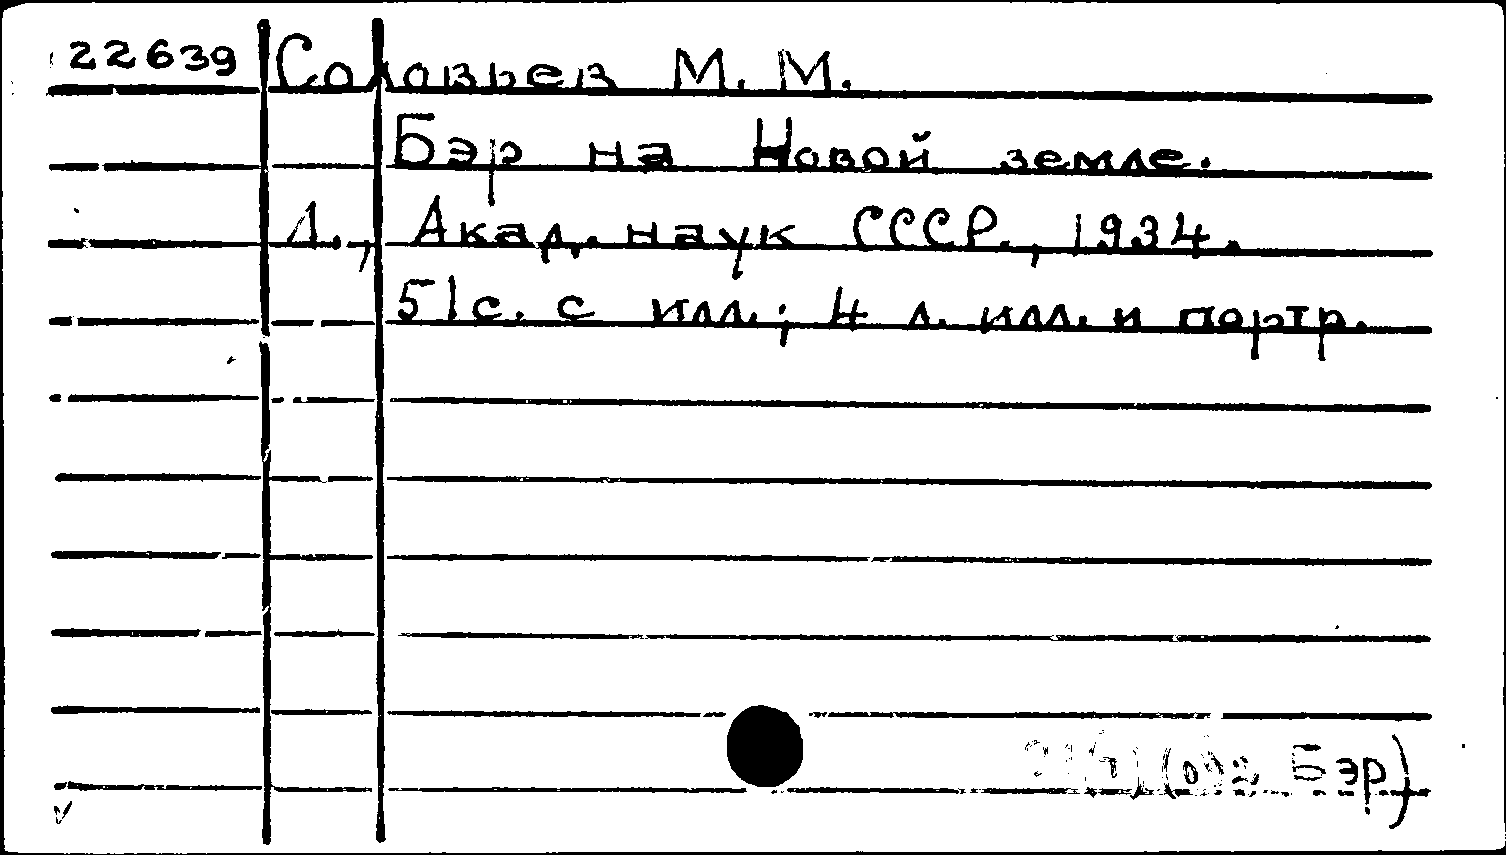 22639 Соловьев М. М.
Бэр на Новой земле.
Л., Акад. наук СССР., 1934.
51 с. с илл.; 4 л. илл. и портр.
Бэр)